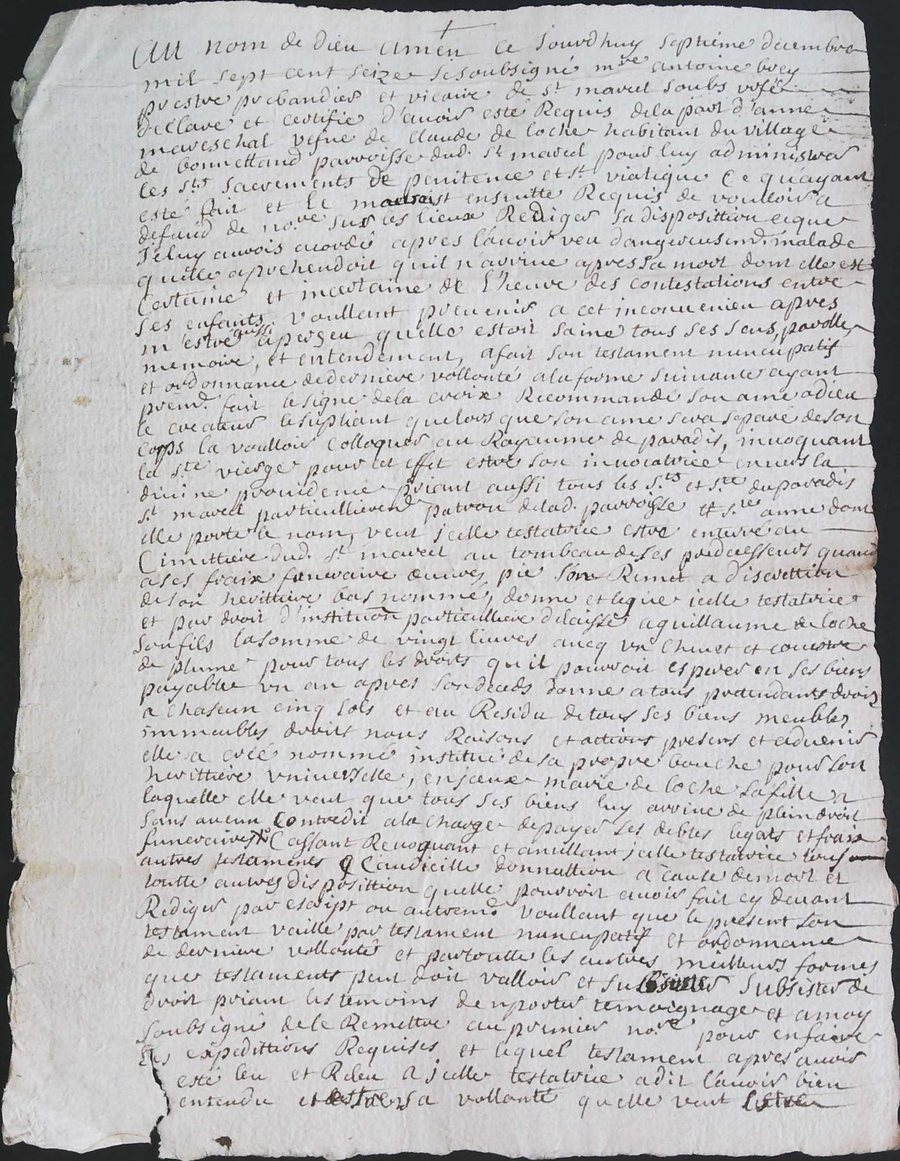 Au nom de dieu amen ce Jourdhuy septième decembre
mil sept cent seize je soubsigné mre antoine
prestre prebandier et vicaire de st marcel soubs
declare et certifie d'avoir esté Requis de la part d'anne
mareschal vefue de Claude de loche habitant du village
de bonnettand parroisse dud. st marcel pour luy administrer
les sts sacrements de penitence et st viatique Ce qu'ayant
esté fait et le ensuitte Requis de voulloir a
defaud de nore sur les lieux Rediger sa disposition ceque
Je luy aurois acordé apres l'avoir veu dangereusemt malade
quelle aprehendoit quil n'arrive apres sa mort dont elle est
Certaine et incertaine de l'heure des contestations entre
ses enfants, voullant prevenir a cet inconvenien apres
m'estre aussi aperçeu quelle estoit saine tous ses sens, parolle
memoire, et entendement, a fait son testament nuncupatif
et ordonnance de derniere vollonté a la forme suivante ayant
premt fait le signe de la croix Recommandé son ame a dieu
le createur le supliant quelors que son ame sera separé de son
Corps la voulloir Colloquer au Royaume de paradis, invoquant
la ste vierge pour cet effet estre son invocatrice envers la
divine providence priant aussi tous les sts et stes du paradis
st marcel particullieremt patron de lad. parroisse et ste anne dont
elle porte le nom, veut jcelle testatrice estre enterré au
Cimittiere dud. st marcel au tombeau de ses predecesseurs quand
a ses fraix funeraire œuvres pie s'en Remet a discrettion
de son herittiere bas nommé, donne et legue jcelle testatrice
et par droit d'institution particulliere delaisse a guillaume de loche
son fils la somme de vingt livres aucq un Chevet et
de plume pour tous les droits qu'il pourroit esperer en ses biens
payable un an apres son deceds donne a tous pretendants droit
a Chascun cinq sols et au Residu de tous ses biens meubles
immeubles droits noms Raisons et actions presens et advenir
elle a créé nommé institué de sa propre bouche pour son
herittiere universelle, marie de loche sa fille a
laquelle elle veut que tous ses biens luy arrive de plein droit
sans aucun Contredit a la charge de payer ses debtes legats et frais
funeraires Cassant Revoquant et anullant jcelle testatrice tous
autres testaments Caudicille donnattion a cause de mort et
toutte autres disposittion quelle pourroit avoir fait cy devant
Rediger par escript ou autremt voullant que le present son
testament vaille par testament nuncupatif et ordonnance
de derniere vollonté et par toutte les autres meilleurs formes
que testaments peut doit valloir et subsister de
droit priant les temoins de porter temoignage et a moy
soubsigné de le Remettre au premier nore pour en faire
les expedittions Requises et lequel testament apres avoir
esté leu et Releu a jcelle testatrice a dit l'avoir bien
entendu et estre sa vollonté quelle veut